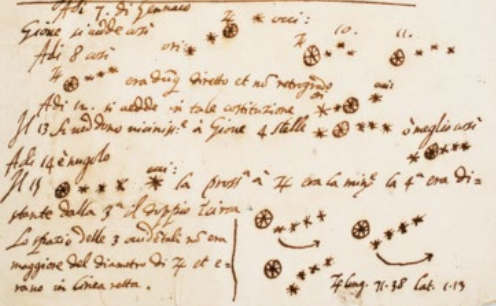 Adi 7. di Gennaio
Giove si vedde così ♃ * occi:
ori: * *
Adi 8 così ♃ 10. 11.
♃ era dunq. diretto et nõ retrogrado
Adi 12. si vedde in tale costituzione ori occi:
Il 13 si veddono vicinisse. à Giove 4 stelle ò meglio così
Adi 14 è nugolo
Il 15 occi: la pross.a à ♃ era la min.e la 4.a era di-
stante dalla 3.a il doppio
Lo spazio delle 3 occidentali nõ era
maggiore del diametro di ♃ et e-
rano in linea retta.
♃ long. 71.38 lat. 1.13